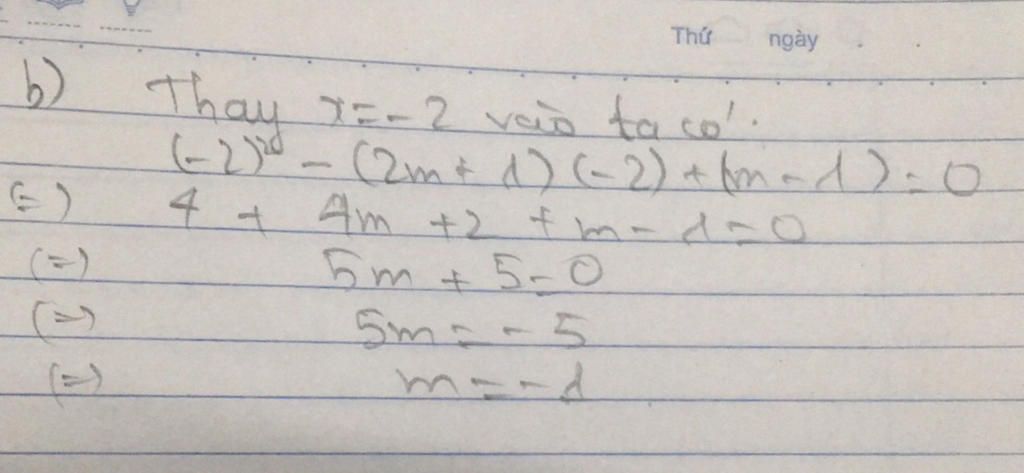 Thứ ngày
b) Thay x = -2 vào ta có:
(-2)² - (2m + 1)(-2) + (m - 1) = 0
(=) 4 + 4m + 2 + m - 1 = 0
(=) 5m + 5 = 0
(=) 5m = -5
(=) m = -1